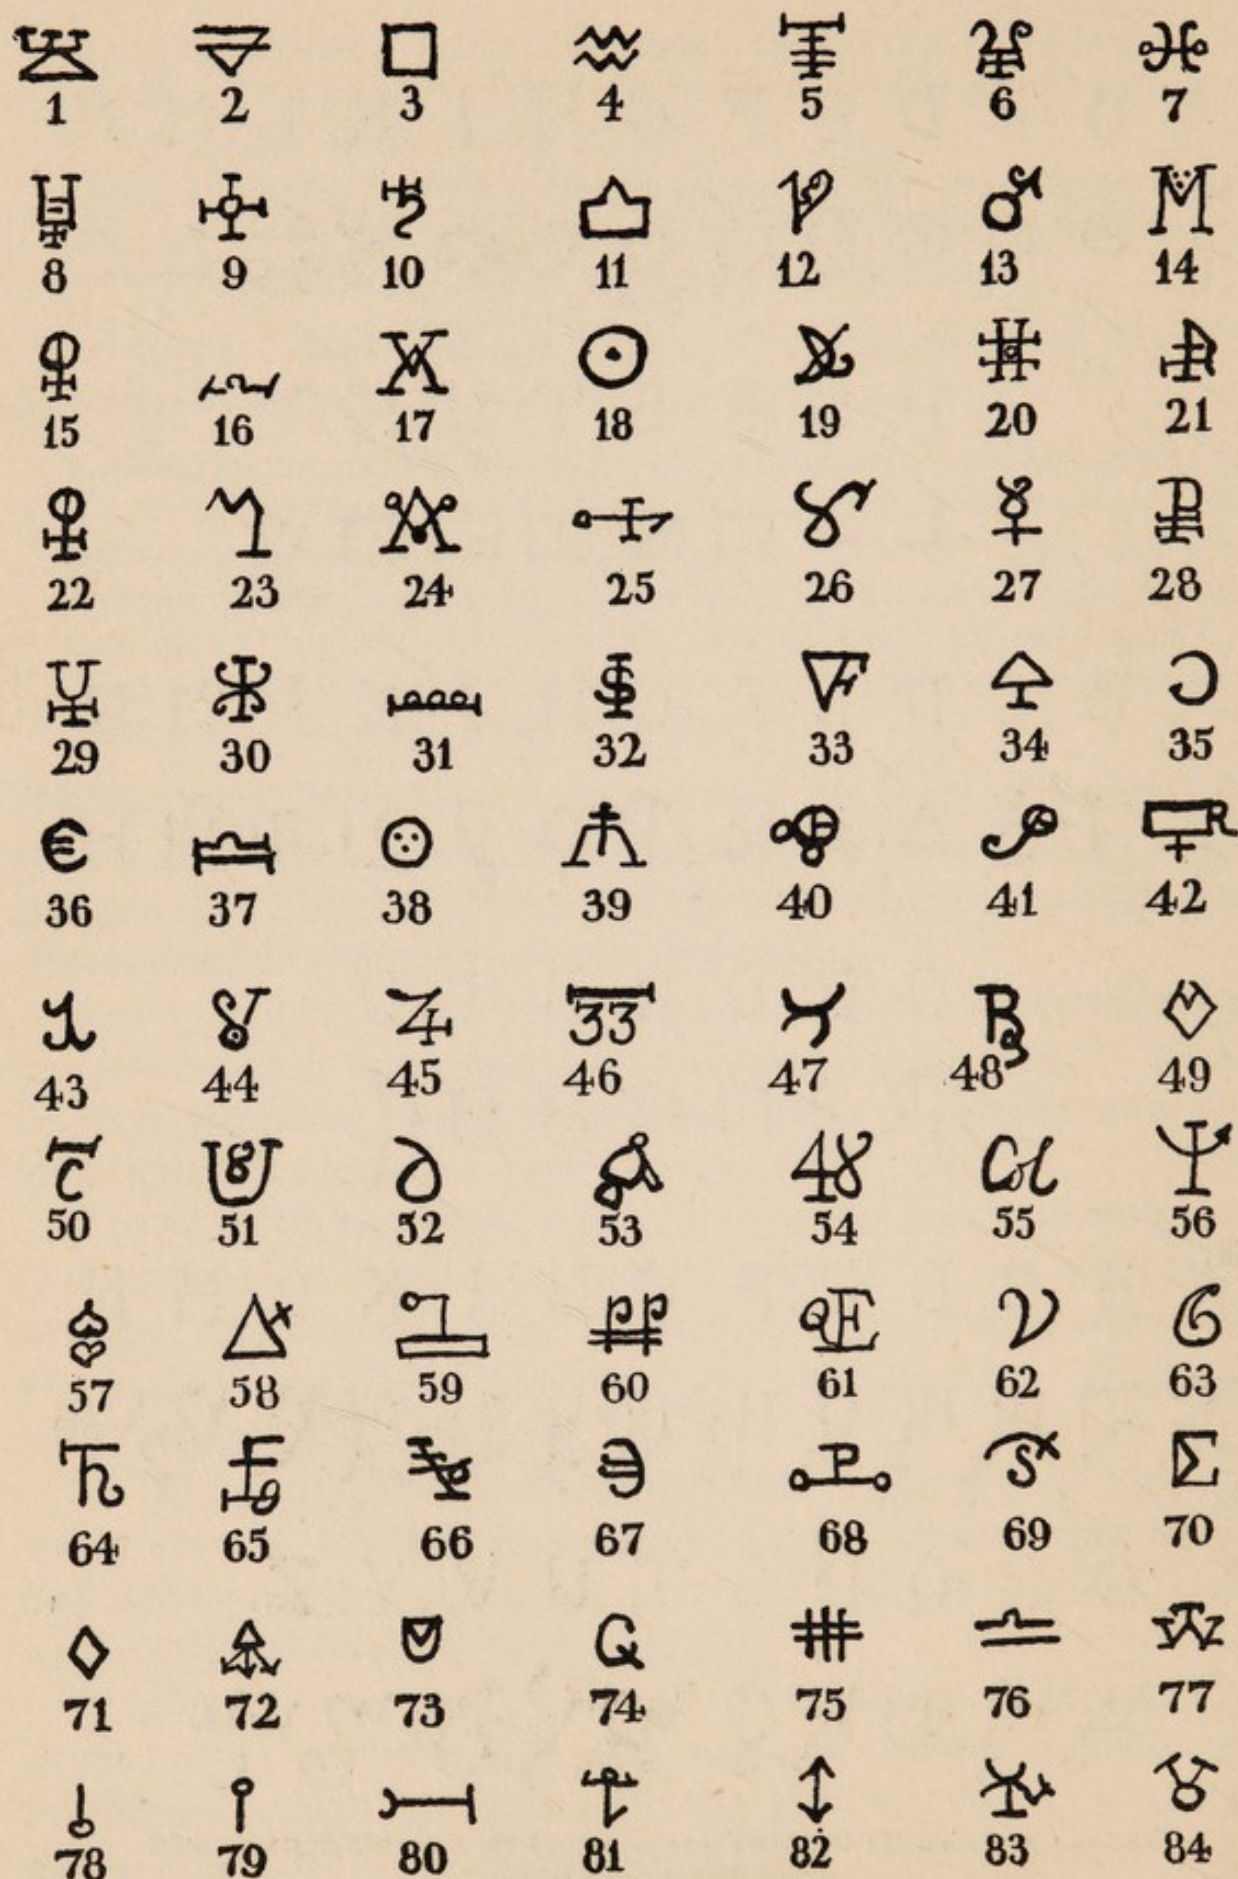 1 2 3 4 5 6 7
8 9 10 11 12 13 14
15 16 17 18 19 20 21
22 23 24 25 26 27 28
29 30 31 32 33 34 35
36 37 38 39 40 41 42
43 44 45 46 47 48 49
50 51 52 53 54 55 56
57 58 59 60 61 62 63
64 65 66 67 68 69 70
71 72 73 74 75 76 77
78 79 80 81 82 83 84